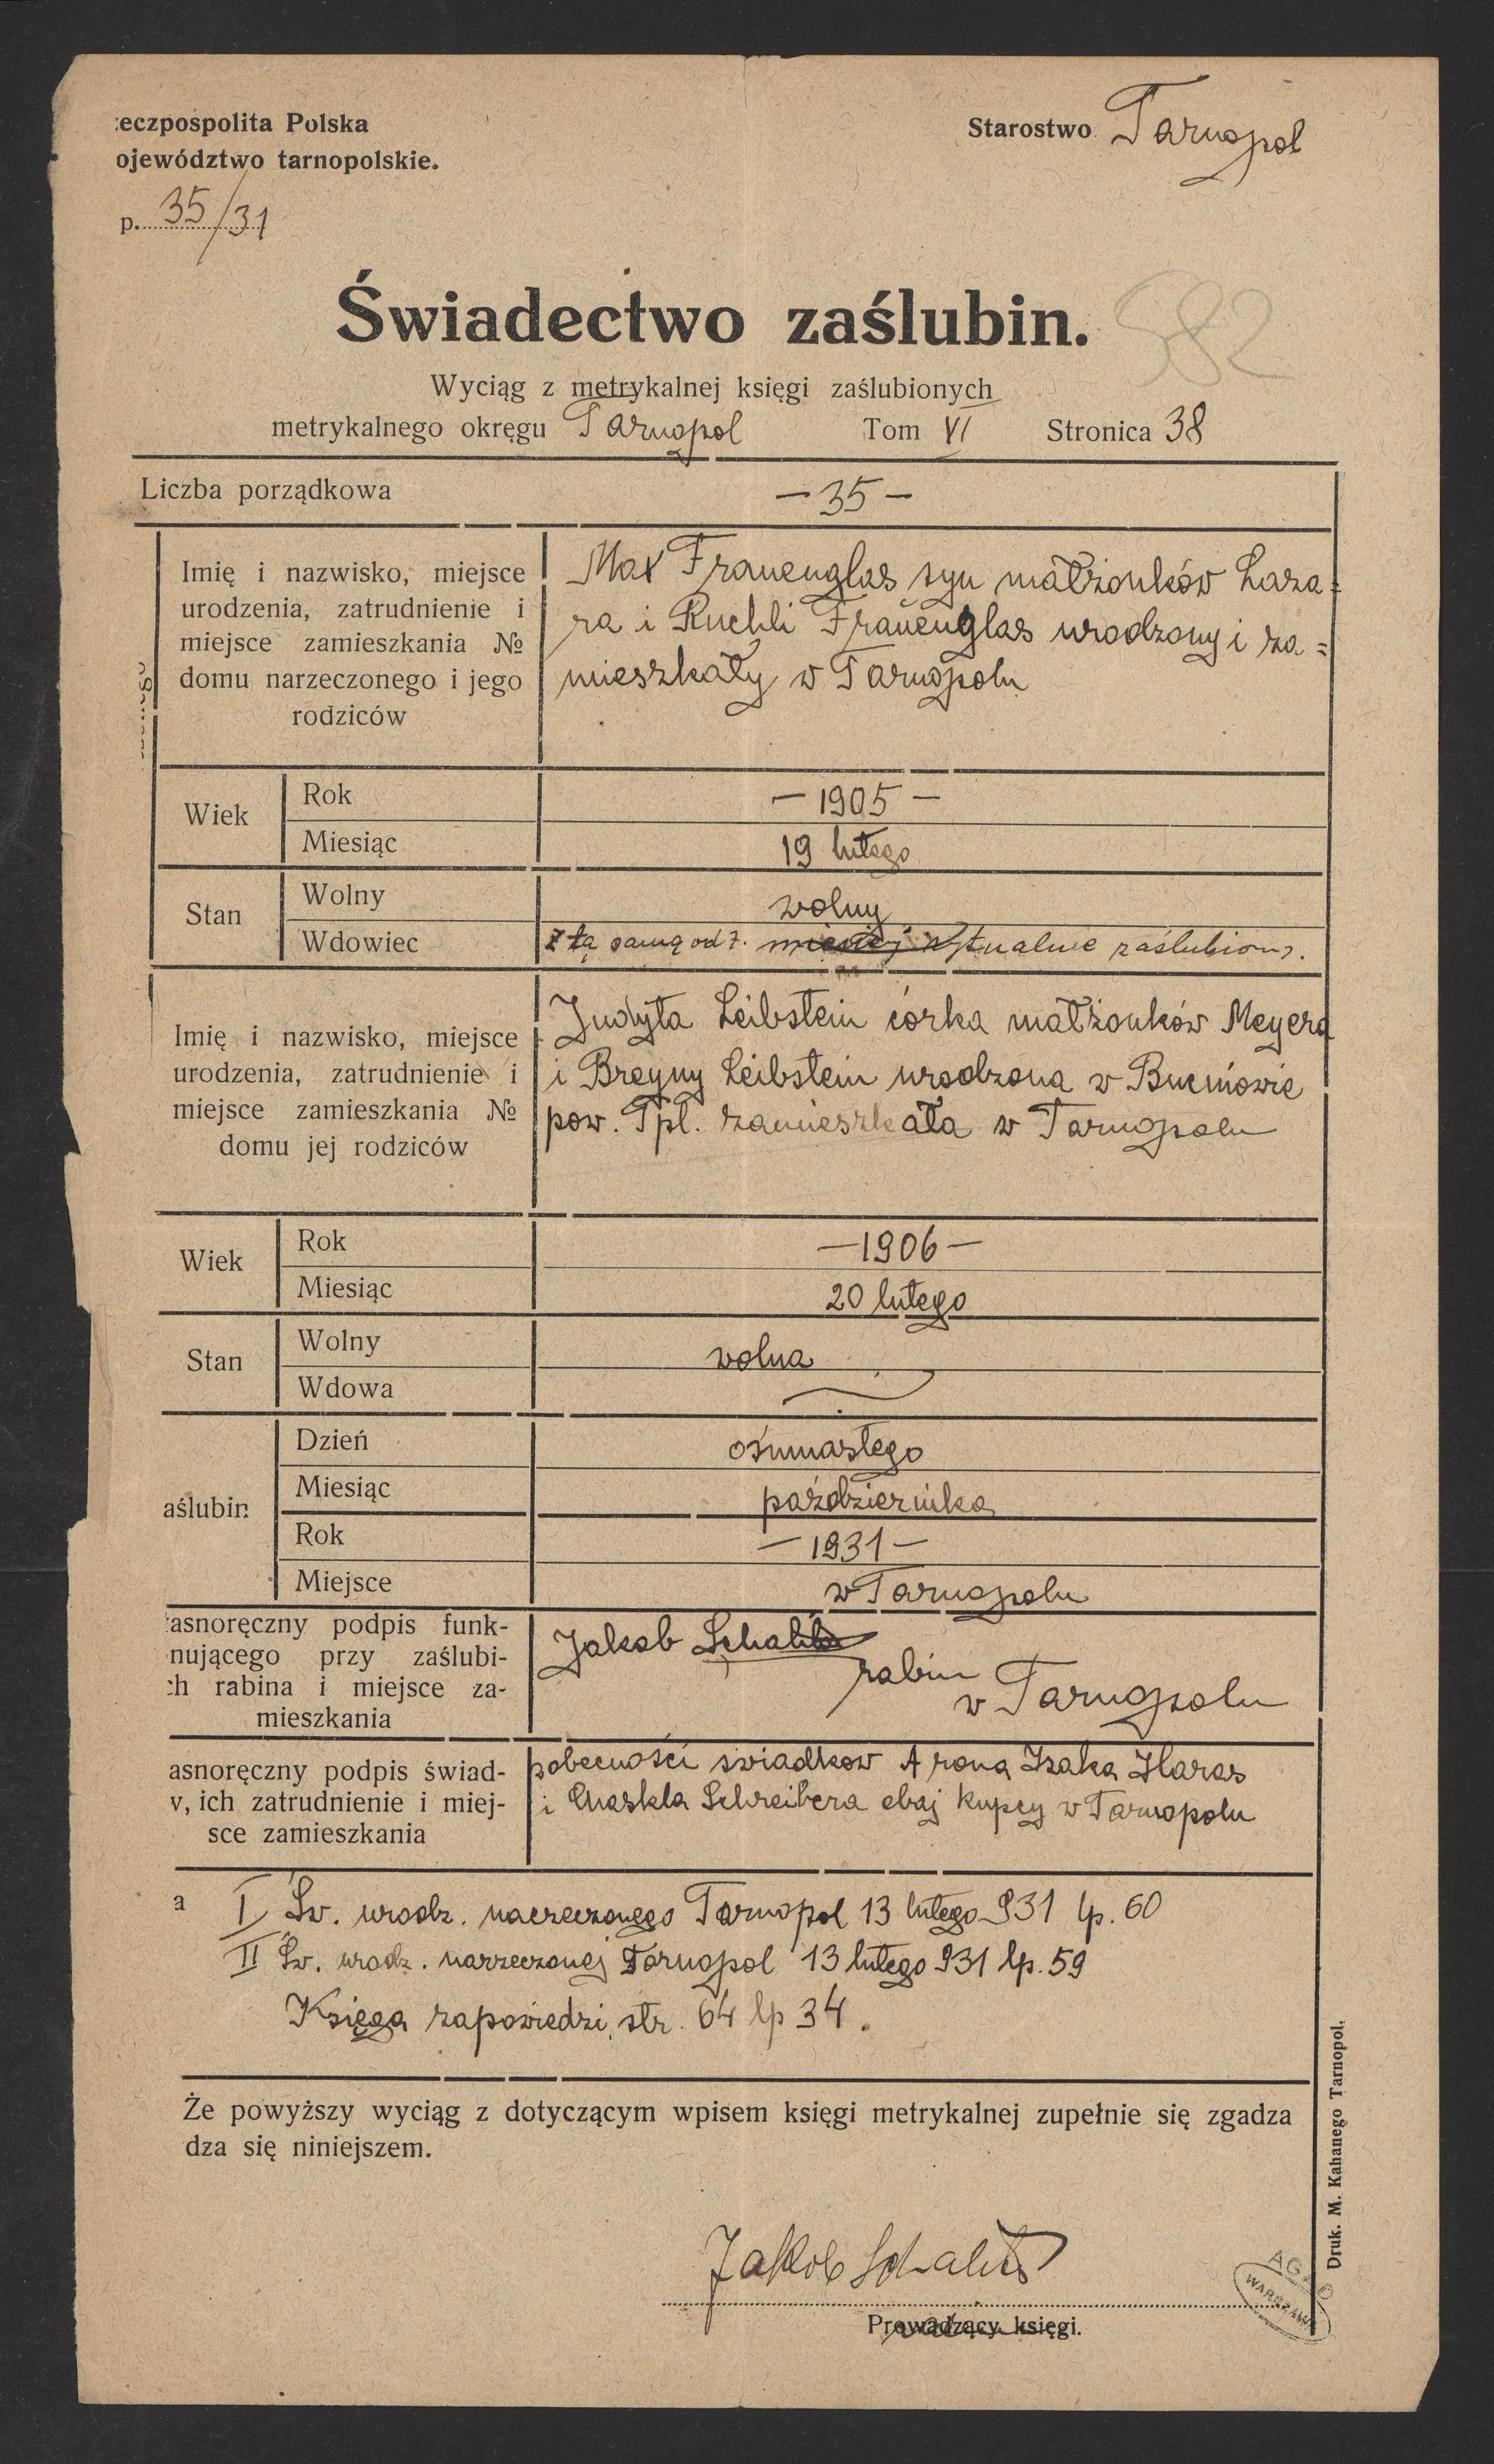 zeczpospolita Polska
ojewództwo tarnopolskie.
Starostwo Tarnopol
p. 35/31
Świadectwo zaślubin.
582
Wyciąg z metrykalnej księgi zaślubionych
metrykalnego okręgu Tarnopol Tom VI Stronica 38
Liczba porządkowa
— 35 —
Imię i nazwisko, miejsce
urodzenia, zatrudnienie i
miejsce zamieszkania №
domu narzeczonego i jego
rodziców
Max Frauenglas syn małżonków Laza=
ra i Ruchli Frauenglas urodzony i za=
mieszkały w Tarnopolu
Wiek
Rok
— 1905 —
Miesiąc
19 lutego
Stan
Wolny
wolny
Wdowiec
z tą samą rytualnie zaślubiony.
Imię i nazwisko, miejsce
urodzenia, zatrudnienie i
miejsce zamieszkania №
domu jej rodziców
Judyta Leibstein córka małżonków Meyera
i Breyny Leibstein urodzona w Bucniowie
pow. Tpl. zamieszkała w Tarnopolu
Wiek
Rok
— 1906 —
Miesiąc
20 lutego
Stan
Wolny
wolna
Wdowa
aślubin
Dzień
ośmnastego
Miesiąc
października
Rok
— 1931 —
Miejsce
w Tarnopolu
asnoręczny podpis funk-
nującego przy zaślubi-
ch rabina i miejsce za-
mieszkania
Jakob Schalit
rabin
w Tarnopolu
asnoręczny podpis świad-
v, ich zatrudnienie i miej-
sce zamieszkania
w obecności świadków Arona Izaka Haras
i Chaskla Schreibera obaj kupcy w Tarnopolu
a
I Św. urodz. narzeczonego Tarnopol 13 lutego 931 lp. 60
II Św. urodz. narzeczonej Tarnopol 13 lutego 931 lp. 59
Księga zapowiedzi, str. 64 lp 34.
Że powyższy wyciąg z dotyczącym wpisem księgi metrykalnej zupełnie się zgadza
dza się niniejszem.
Jakob Schalit
Prowadzący księgi.
Druk. M. Kahanego Tarnopol.
AGAD
WARSZAWA